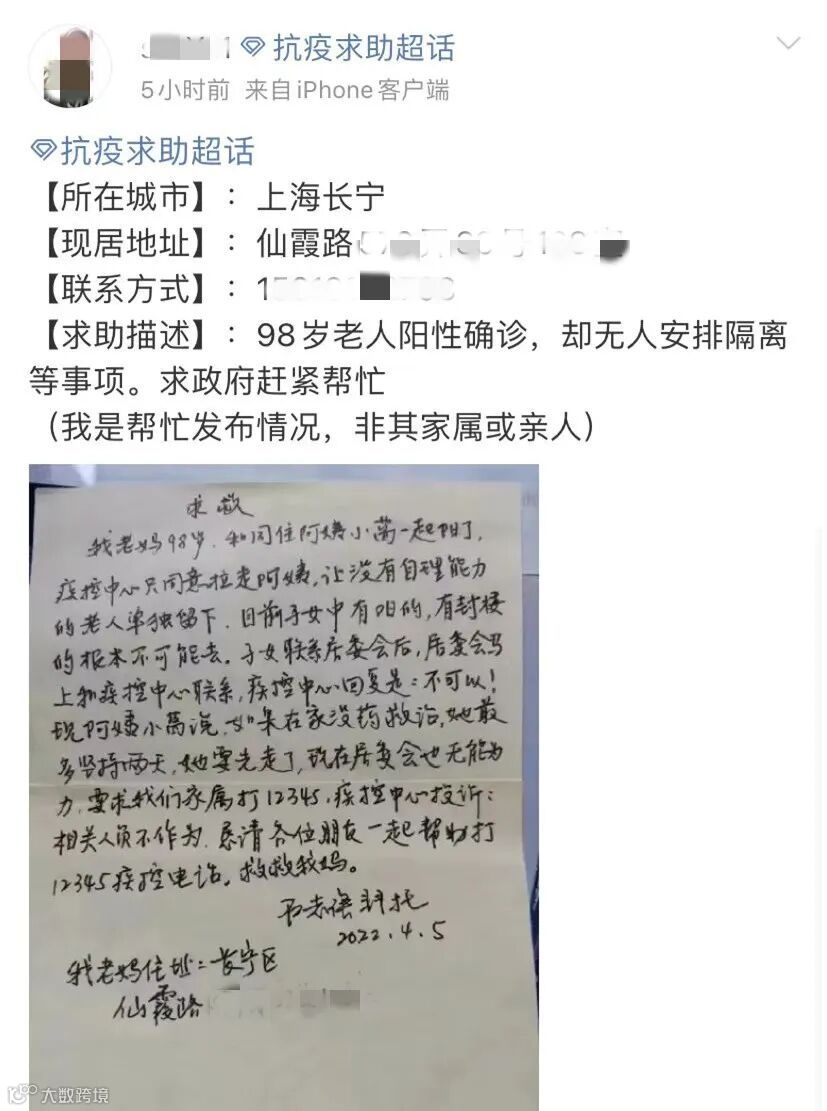 抗疫求助超话
5小时前 来自iPhone客户端
抗疫求助超话
【所在城市】：上海长宁
【现居地址】：仙霞路
【联系方式】：1
【求助描述】：98岁老人阳性确诊，却无人安排隔离
等事项。求政府赶紧帮忙
（我是帮忙发布情况，非其家属或亲人）
求救
我老妈98岁．和同住阿姨小萬一起阳了，
疾控中心只同意拉走阿姨，让没有自理能力
的老人单独留下．目前子女中有阳的，有封楼
的根本不可能去．子女联系居委会后，居委会马
上和疾控中心联系，疾控中心回复是：不可以！
现阿姨小萬说，如果在家没药救治，她最
多坚持两天，她要先走了，现在居委会也无能为
力，要求我们家属打12345，疾控中心投诉：
相关人员不作为．恳请各位朋友一起帮助打
12345疾控电话。救救我妈。
拜托
2022.4.5
我老妈住址：长宁区
仙霞路
大数跨境